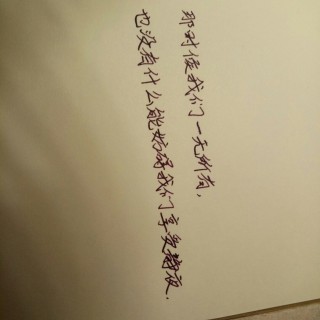 那时候我们一无所有，
也没有什么能妨碍我们享受静夜．